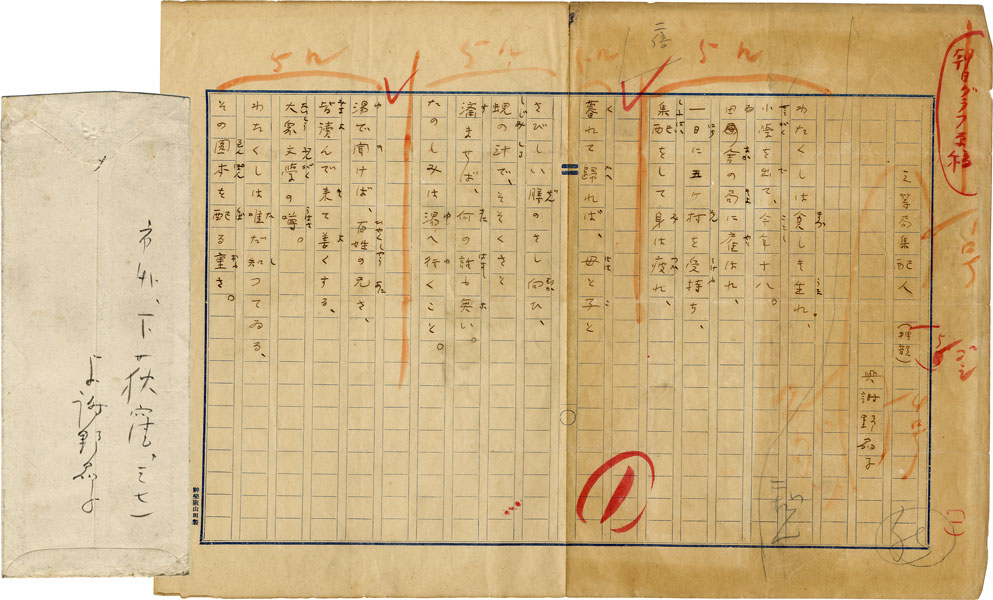 朝日グラフ原稿
(一)
三等局集配人 (押韻)
與謝野晶子
わたくしは貧しき生れ、
小學を出て、今年十八。
田舎の局に雇はれ、
一日に五ケ村を受持ち、
集配をして身は疲れ、
暮れて歸れば、母と子と
さびしい膳のさし向ひ、
蜆の汁で、そそくさと
濟ませば、何の話も無い。
たのしみは湯へ行くこと。
湯で聞けば、百姓の兄さ、
皆讀んで来て善くする、
大衆文學の噂。
わたくしは唯だ知つてゐる、
その圓本を配る重さ。
市外、下荻窪、三七一
与謝野晶子